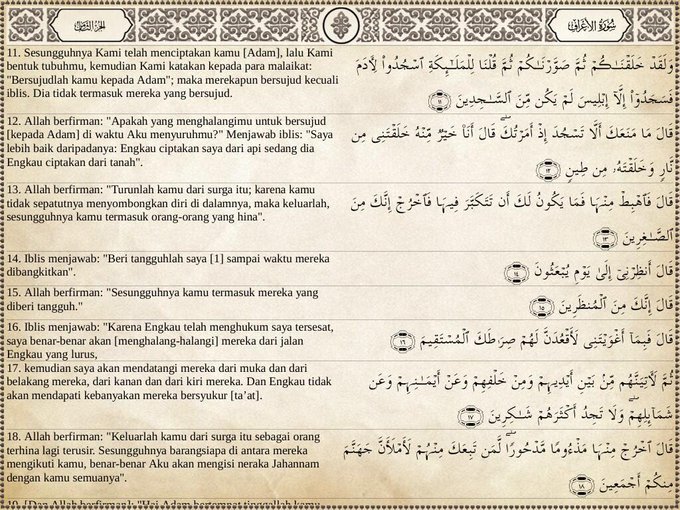 سُورَةُ الأَعْرَافِ
11. Sesungguhnya Kami telah menciptakan kamu [Adam], lalu Kami
bentuk tubuhmu, kemudian Kami katakan kepada para malaikat:
"Bersujudlah kamu kepada Adam"; maka merekapun bersujud kecuali
iblis. Dia tidak termasuk mereka yang bersujud.
وَلَقَدْ خَلَقْنَـٰكُمْ ثُمَّ صَوَّرْنَـٰكُمْ ثُمَّ قُلْنَا لِلْمَلَـٰٓئِكَةِ ٱسْجُدُوا۟ لِـَٔادَمَ
فَسَجَدُوٓا۟ إِلَّآ إِبْلِيسَ لَمْ يَكُن مِّنَ ٱلسَّـٰجِدِينَ ١١
12. Allah berfirman: "Apakah yang menghalangimu untuk bersujud
[kepada Adam] di waktu Aku menyuruhmu?" Menjawab iblis: "Saya
lebih baik daripadanya: Engkau ciptakan saya dari api sedang dia
Engkau ciptakan dari tanah".
قَالَ مَا مَنَعَكَ أَلَّا تَسْجُدَ إِذْ أَمَرْتُكَ ۖ قَالَ أَنَا۠ خَيْرٌ مِّنْهُ خَلَقْتَنِى مِن
نَّارٍ وَخَلَقْتَهُۥ مِن طِينٍ ١٢
13. Allah berfirman: "Turunlah kamu dari surga itu; karena kamu
tidak sepatutnya menyombongkan diri di dalamnya, maka keluarlah,
sesungguhnya kamu termasuk orang-orang yang hina".
قَالَ فَٱهْبِطْ مِنْهَا فَمَا يَكُونُ لَكَ أَن تَتَكَبَّرَ فِيهَا فَٱخْرُجْ إِنَّكَ مِنَ
ٱلصَّـٰغِرِينَ ١٣
14. Iblis menjawab: "Beri tangguhlah saya [1] sampai waktu mereka
dibangkitkan".
قَالَ أَنظِرْنِىٓ إِلَىٰ يَوْمِ يُبْعَثُونَ ١٤
15. Allah berfirman: "Sesungguhnya kamu termasuk mereka yang
diberi tangguh."
قَالَ إِنَّكَ مِنَ ٱلْمُنظَرِينَ ١٥
16. Iblis menjawab: "Karena Engkau telah menghukum saya tersesat,
saya benar-benar akan [menghalang-halangi] mereka dari jalan
Engkau yang lurus,
قَالَ فَبِمَآ أَغْوَيْتَنِى لَأَقْعُدَنَّ لَهُمْ صِرَٰطَكَ ٱلْمُسْتَقِيمَ ١٦
17. kemudian saya akan mendatangi mereka dari muka dan dari
belakang mereka, dari kanan dan dari kiri mereka. Dan Engkau tidak
akan mendapati kebanyakan mereka bersyukur [ta’at].
ثُمَّ لَـَٔاتِيَنَّهُم مِّنۢ بَيْنِ أَيْدِيهِمْ وَمِنْ خَلْفِهِمْ وَعَنْ أَيْمَـٰنِهِمْ وَعَن
شَمَآئِلِهِمْ ۖ وَلَا تَجِدُ أَكْثَرَهُمْ شَـٰكِرِينَ ١٧
18. Allah berfirman: "Keluarlah kamu dari surga itu sebagai orang
terhina lagi terusir. Sesungguhnya barangsiapa di antara mereka
mengikuti kamu, benar-benar Aku akan mengisi neraka Jahannam
dengan kamu semuanya".
قَالَ ٱخْرُجْ مِنْهَا مَذْءُومًا مَّدْحُورًا ۖ لَّمَن تَبِعَكَ مِنْهُمْ لَأَمْلَأَنَّ جَهَنَّمَ
مِنكُمْ أَجْمَعِينَ ١٨
19. [Dan Allah berfirman]: "Hai Adam bertempat tinggallah kamu